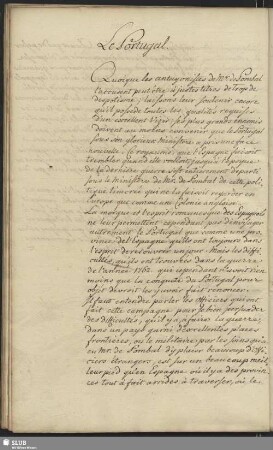 Le Portugal.
Quoique les antagonistes de Mr. de Pombal
l'accusent peut être à justes titres de trop de
despotisme, les favoris leur soutenir encore
qu'il possede toutes les qualités requises
d'un excellent Vizir; ses plus grands ennemis
doivent au moins convenir que le Portugal
sous son glorieux Ministere a pris une force
nouvelle, le royaume que l'Espagne faisoit
trembler quand elle vouloit jusqu'à l'époque
de la derniere guerre s'est entierement départi
sous le Ministere de Mr. de Pombal de cette poli-
tique timorée qui ne la faisoit regarder en
Europe que comme une Colonie angloise.
La morgue et l'esprit romanesque des Espagnols
ne leur permettent cependant pas d'envisager
autrement le Portugal que comme une pro-
vince de l'Espagne qu'ils ont toujours dans
l'esprit de reconquerir un jour. Mais les diffi-
cultés qu'ils ont trouvées dans la guerre
de l'année 1762. qui cependant n'avoit rien
moins que la conquete du Portugal pour
objet devroit les y avoir fait renoncer.
Il faut entendre parler les officiers qui ont
fait cette campagne pour se bien persuader
des difficultés, qu'il y a à faire la guerre
dans un pays garni d'excellentes places
frontieres, où le militaire par les soins qu'a
eu Mr. de Pombal d'y placer beaucoup d'offi-
ciers étrangers, est sur un beaucoup meil-
leur pied qu'en Espagne où il y a des provin-
ces tout à fait arrides à traverser, où le